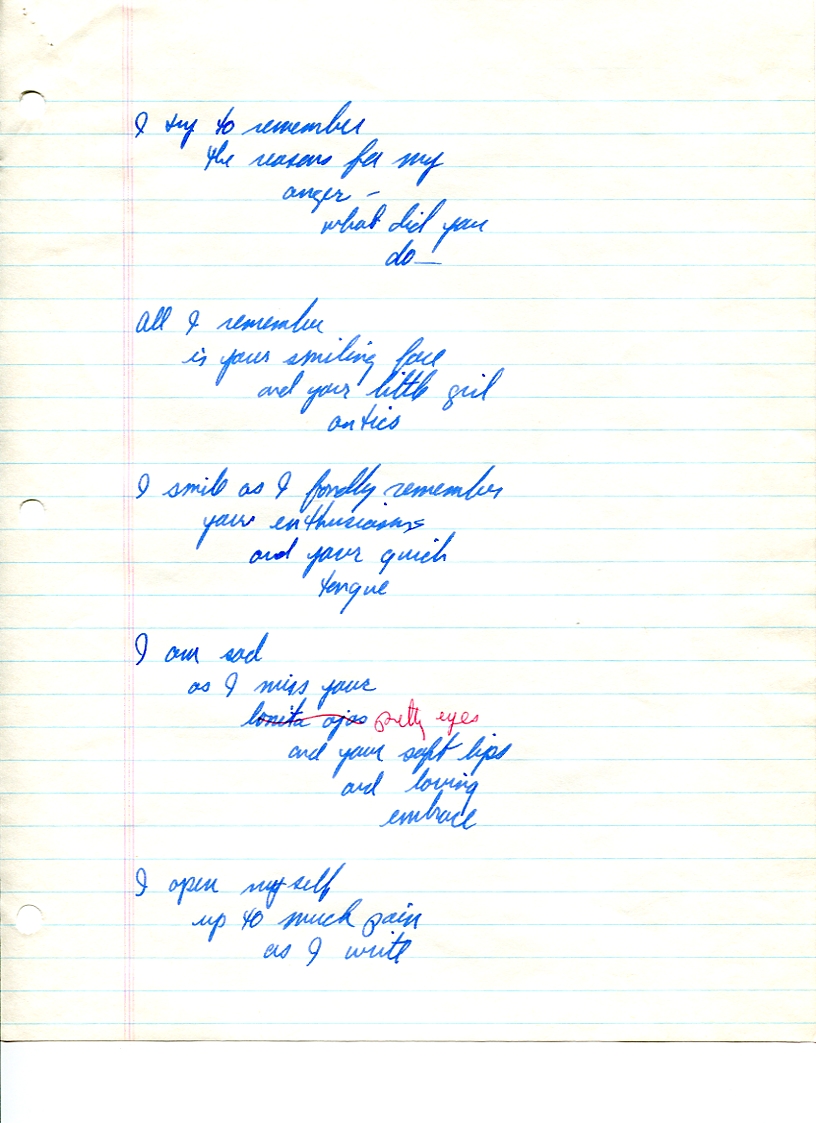 I try to remember
the reasons for my
anger –
what did you
do —
All I remember
is your smiling face
and your little girl
antics
I smile as I fondly remember
your enthusiasms
and your quick
tongue
I am sad
as I miss your
bonita ojos pretty eyes
and your soft lips
and loving
embrace
I open myself
up to much pain
as I write